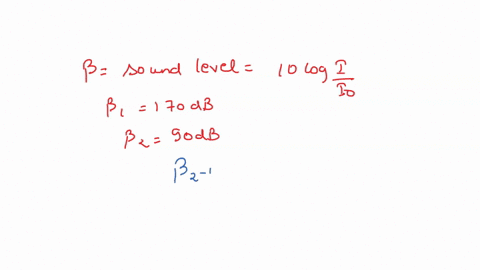 β = sound level = 10 log I/I₀
β₁ = 170 dB
β₂ = 90 dB
β₂₋₁